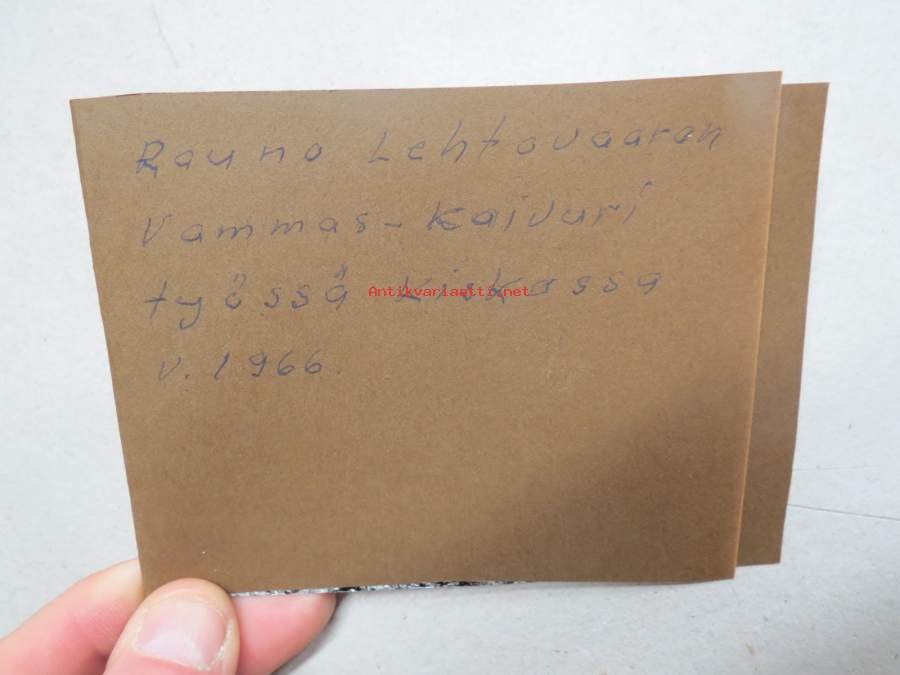 Rauno Lehtovaaran
Vammas-Kaivuri
työssä Kiskossa
v. 1966.
Antikvariaatti.net